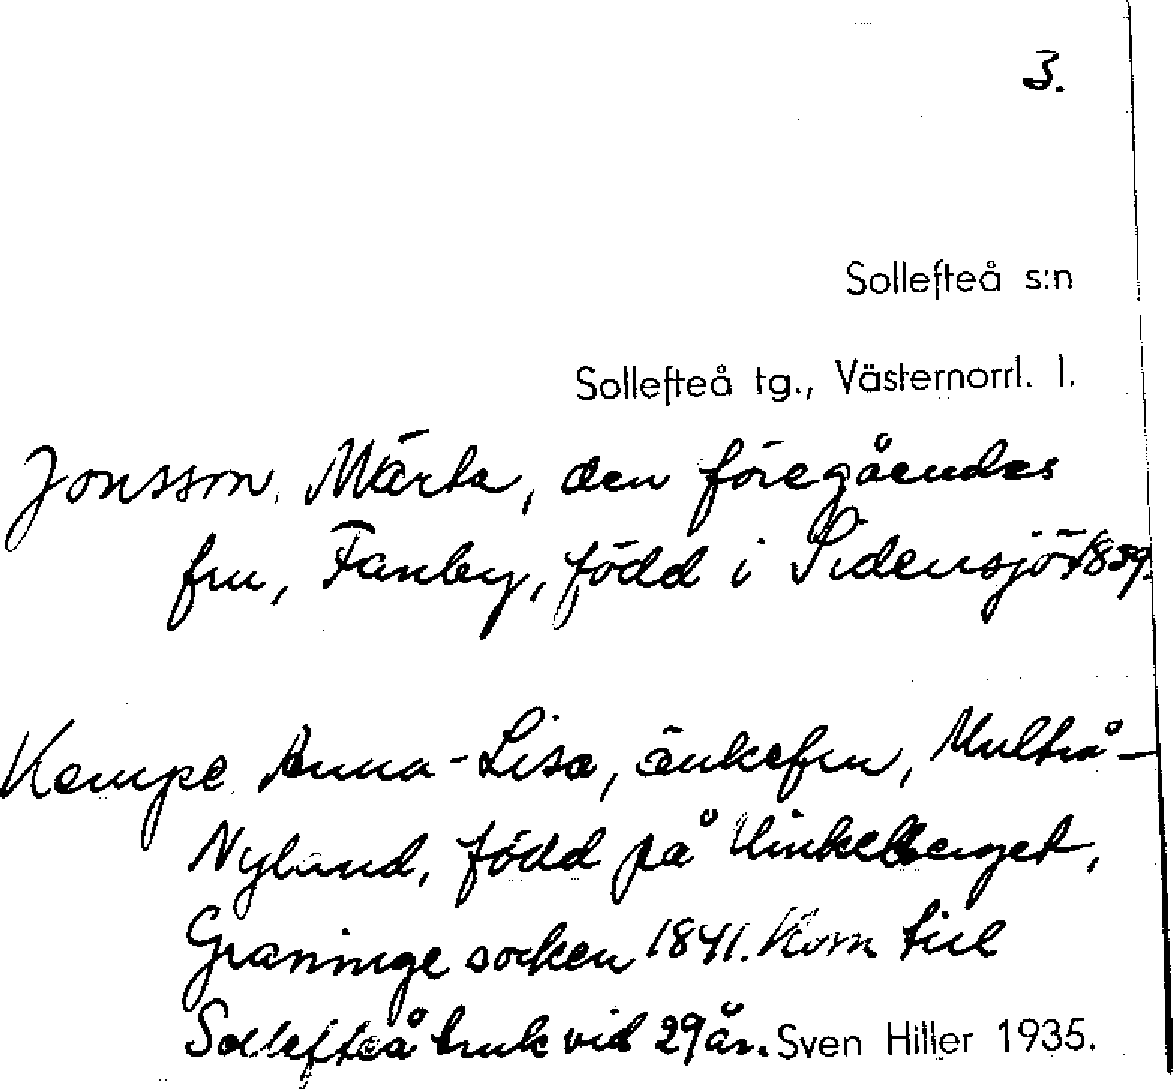 3.
Sollefteå s:n
Sollefteå tg., Västernorrl. l.
Jonsson, Märta, den föregåendes
fru, Fanby, född i Sidensjö 1859.
Kempe Anna-Lisa, änkefru, Multrå-
Nyland, född på Vinkelberget,
Graninge socken 1841. Kom till
Sollefteå bruk vid 29 år. Sven Hiller 1935.